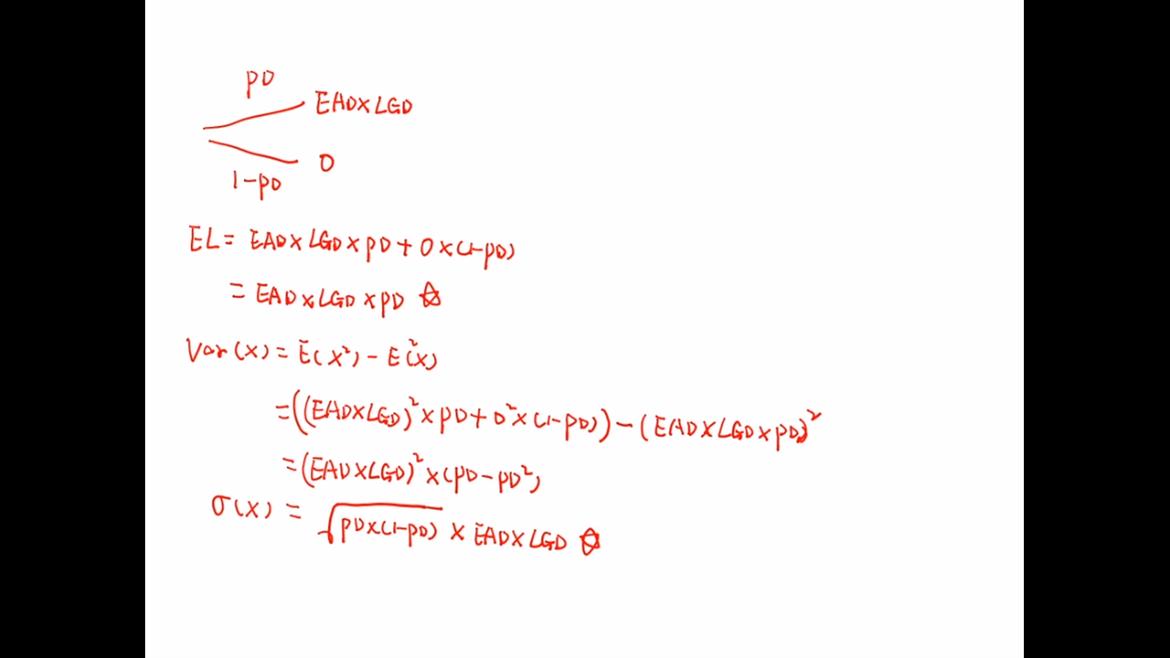 PD
EAD×LGD
0
1-PD
EL= EAD×LGD×PD+0×(1-PD)
= EAD×LGD×PD ☆
Var(X)=E(X²)-E²(X)
=((EAD×LGD)²×PD+0²×(1-PD))-(EAD×LGD×PD)²
=(EAD×LGD)²×(PD-PD²)
σ(X) = √PD×(1-PD) × EAD×LGD ☆